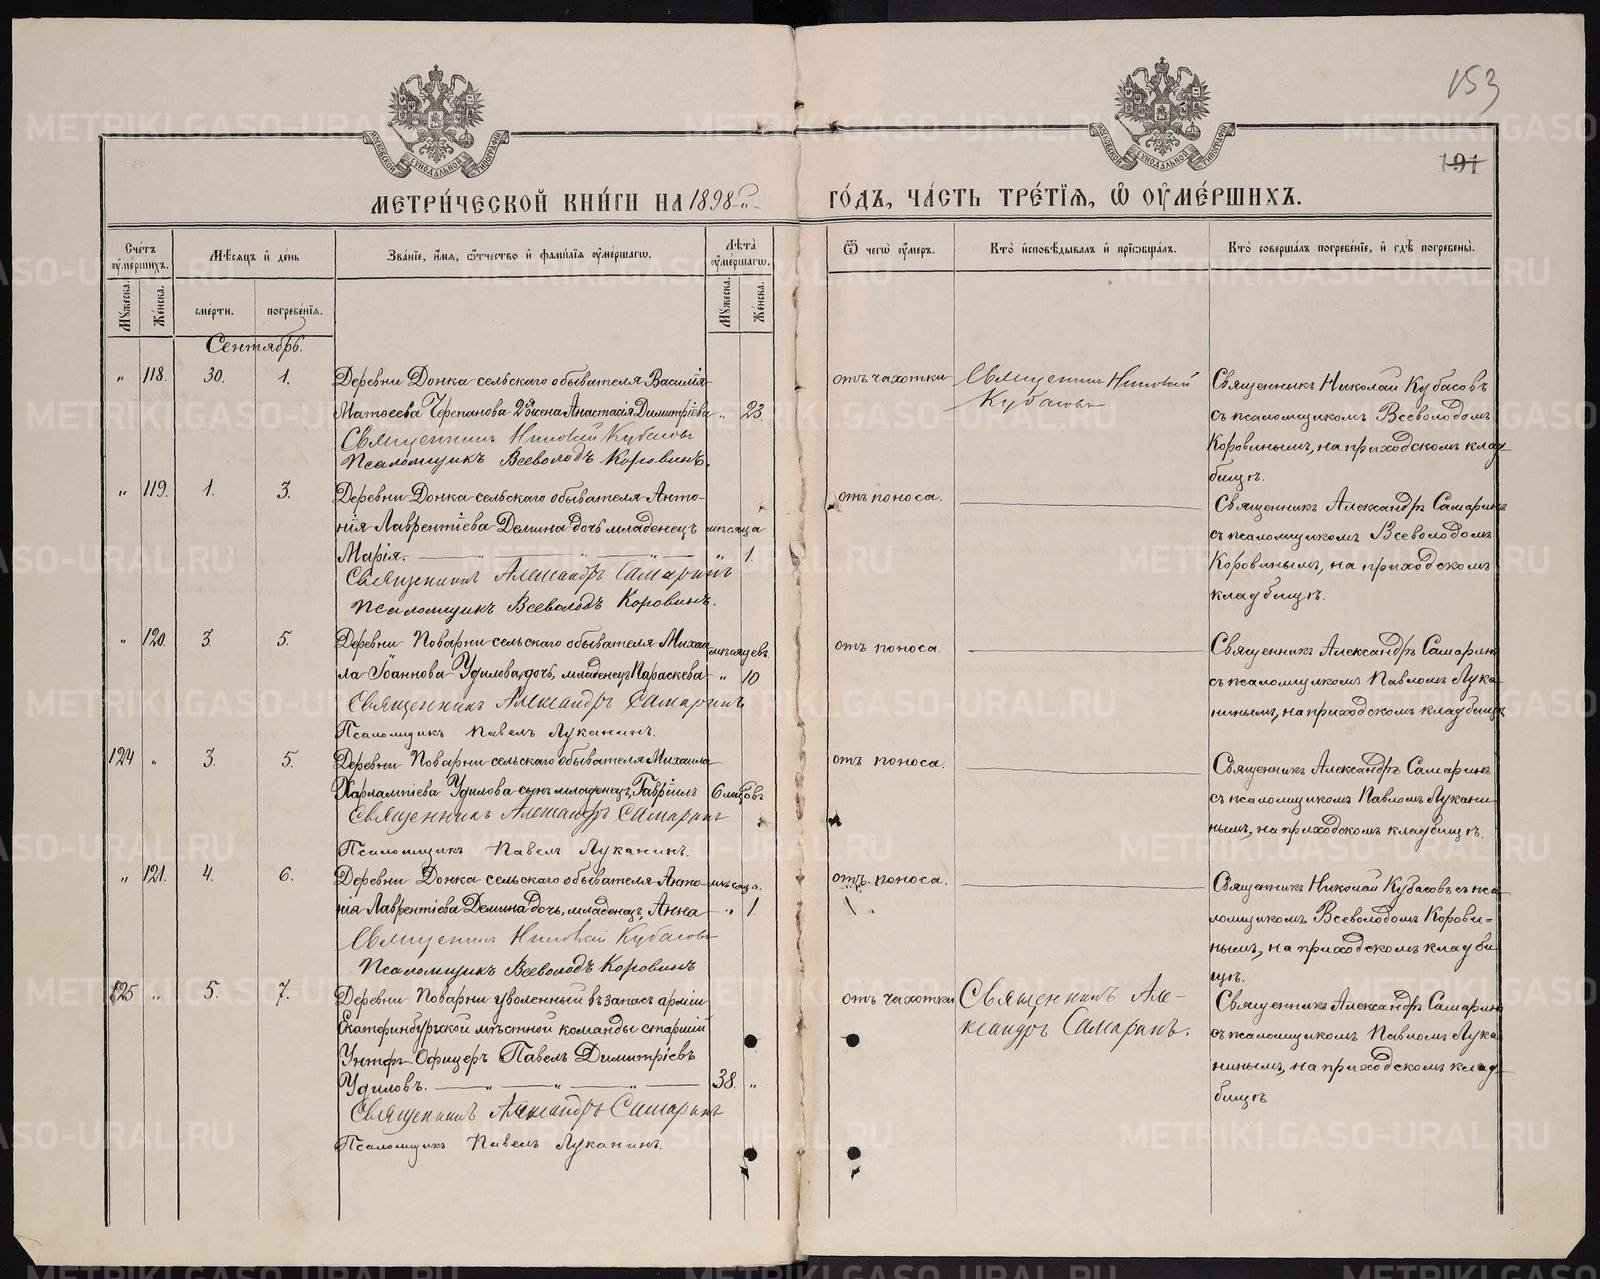 153
191
МЕТРИ́ЧЕСКОЙ КНИ́ГИ НА 1898 ГО́ДЪ, ЧА́СТЬ ТРЕ́ТІѦ, Ѡ ОУМЕ́РШИХЪ.
Сче́тъ оумершихъ.
Мꙋжеска.
Же́нска.
Мѣ́сѧцъ и де́нь
сме́рти.
погребе́нїѧ.
Зва́нїе, и́мѧ, ѻ҆́тчество и фами́лїѧ оуме́ршагѡ.
Лѣ́та оуме́ршагѡ.
Мꙋжеска.
Же́нска.
Ѿ чегѡ̀ оу́меръ.
Кто̀ и҆сповѣ́дывалъ и прїѡбща́лъ.
Кто̀ соверша́лъ погребе́нїе, и гдѣ̀ погребены̀.
Сентябрь.
" 118. 30. 1.
Деревни Донка сельскаго обывателя Василія
Матѳеева Черепанова 2ая жена Анастасія Димитріева " 23.
Священникъ Николай Кубасовъ
Псаломщикъ Всеволодъ Коровинъ.
отъ чахотки
Священникъ Николай
Кубасовъ
Священникъ Николай Кубасовъ
съ псаломщикомъ Всеволодомъ
Коровинымъ, на приходскомъ клад-
бищѣ.
" 119. 1. 3.
Деревни Донка сельскаго обывателя Анто-
нія Лаврентіева Демина дочь младенецъ мѣсяца
Марія. " 1.
Священникъ Александръ Самаринъ
Псаломщикъ Всеволодъ Коровинъ.
отъ поноса.
Священникъ Александръ Самаринъ
съ псаломщикомъ Всеволодомъ
Коровинымъ, на приходскомъ
кладбищѣ.
" 120. 3. 5.
Деревни Поварни сельскаго обывателя Михаи- мѣсяцевъ.
ла Іоаннова Удилова, дочь, младенецъ Параскева " 10
Священникъ Александръ Самаринъ
Псаломщикъ Павелъ Луканинъ.
отъ поноса.
Священникъ Александръ Самаринъ
съ псаломщикомъ Павломъ Лука-
нинымъ, на приходскомъ кладбищѣ
124 " 3. 5.
Деревни Поварни сельскаго обывателя Михаила
Харлампіева Удилова сынъ младенецъ, Гавріилъ 6 мѣс.
Священникъ Александръ Самаринъ
Псаломщикъ Павелъ Луканинъ.
отъ поноса.
Священникъ Александръ Самаринъ
съ псаломщикомъ Павломъ Лукани-
нымъ, на приходскомъ кладбищѣ.
" 121. 4. 6.
Деревни Донка сельскаго обывателя Анто- мѣсяца.
нія Лаврентіева Демина дочь, младенецъ, Анна " 1.
Священникъ Николай Кубасовъ
Псаломщикъ Всеволодъ Коровинъ
отъ поноса.
Священникъ Николай Кубасовъ съ пса-
ломщикомъ Всеволодомъ Корови-
нымъ, на приходскомъ кладби-
щѣ.
125 " 5. 7.
Деревни Поварни уволенный въ запасъ арміи
Екатеринбургской мѣстной команды старшій
Унтеръ-Офицеръ Павелъ Димитріевъ
Удиловъ. 38. "
Священникъ Александръ Самаринъ
Псаломщикъ Павелъ Луканинъ.
отъ чахотки
Священникъ Але-
ксандръ Самаринъ.
Священникъ Александръ Самаринъ
съ псаломщикомъ Павломъ Лука-
нинымъ, на приходскомъ клад-
бищѣ
METRIKI.GASO-URAL.RU